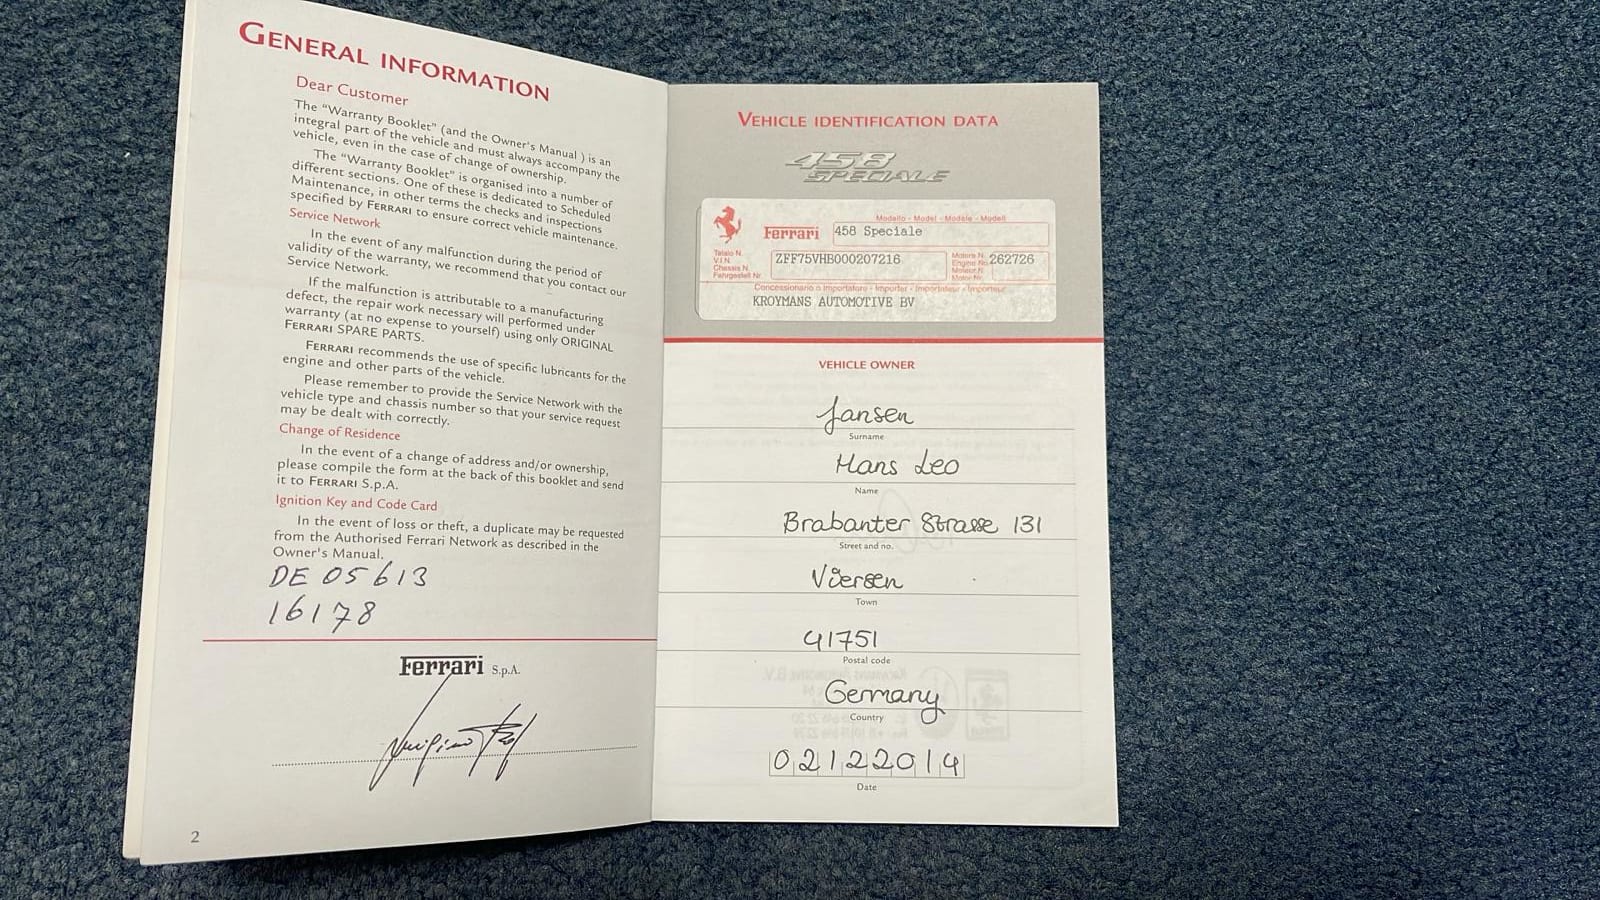 GENERAL INFORMATION
Dear Customer
The “Warranty Booklet” (and the Owner's Manual ) is an
integral part of the vehicle and must always accompany the
vehicle, even in the case of change of ownership.
The “Warranty Booklet” is organised into a number of
different sections. One of these is dedicated to Scheduled
Maintenance, in other terms the checks and inspections
specified by FERRARI to ensure correct vehicle maintenance.
Service Network
In the event of any malfunction during the period of
validity of the warranty, we recommend that you contact our
Service Network.
If the malfunction is attributable to a manufacturing
defect, the repair work necessary will performed under
warranty (at no expense to yourself) using only ORIGINAL
FERRARI SPARE PARTS.
FERRARI recommends the use of specific lubricants for the
engine and other parts of the vehicle.
Please remember to provide the Service Network with the
vehicle type and chassis number so that your service request
may be dealt with correctly.
Change of Residence
In the event of a change of address and/or ownership,
please compile the form at the back of this booklet and send
it to FERRARI S.p.A.
Ignition Key and Code Card
In the event of loss or theft, a duplicate may be requested
from the Authorised Ferrari Network as described in the
Owner's Manual.
DE 05613
16178
Ferrari S.p.A.
2
VEHICLE IDENTIFICATION DATA
458
SPECIALE
Modello - Model - Modèle - Modell
Ferrari 458 Speciale
Telaio N.
V.I.N.
Chassis N.
Fahrgestell Nr.
ZFF75VHB000207216
Motore N.
Engine No.
Moteur N.
Motor Nr.
262726
Concessionario o Importatore - Importer - Importateur - Importeur
KROYMANS AUTOMOTIVE BV
VEHICLE OWNER
Jansen
Surname
Hans Leo
Name
Brabanter Strasse 131
Street and no.
Viersen
Town
41751
Postal code
Germany
Country
02122014
Date